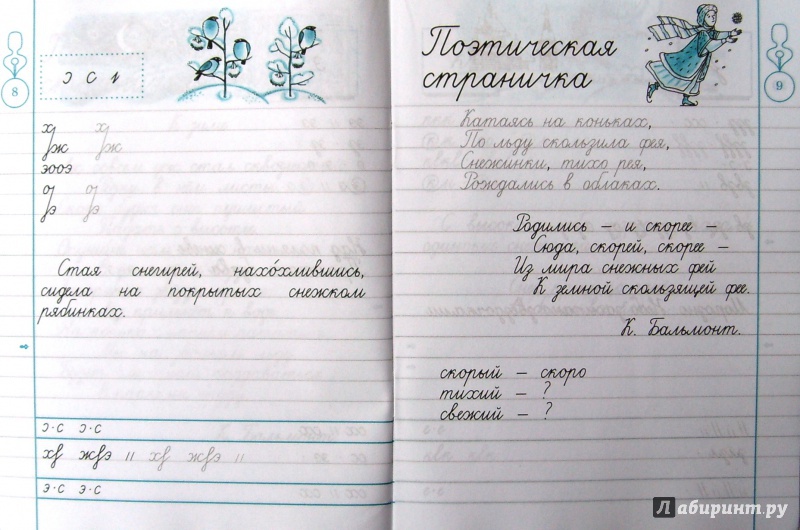 8
ɔ с и
х х
ж ж
эоэ
э э
Стая снегирей, нахо́хлившись,
сидела на покрытых снежком
рябинках.
ɔ·с ɔ·с
э·с э·с
9
Поэтическая
страничка
Катаясь на коньках,
По льду скользила фея,
Снежинки, тихо рея,
Рождались в облаках.
Родились – и скорее –
Сюда, скорей, скорее –
Из мира снежных фей
К земной скользящей фее.
К. Бальмонт.
скорый – скоро
тихий – ?
свежий – ?
Лабиринт.ру